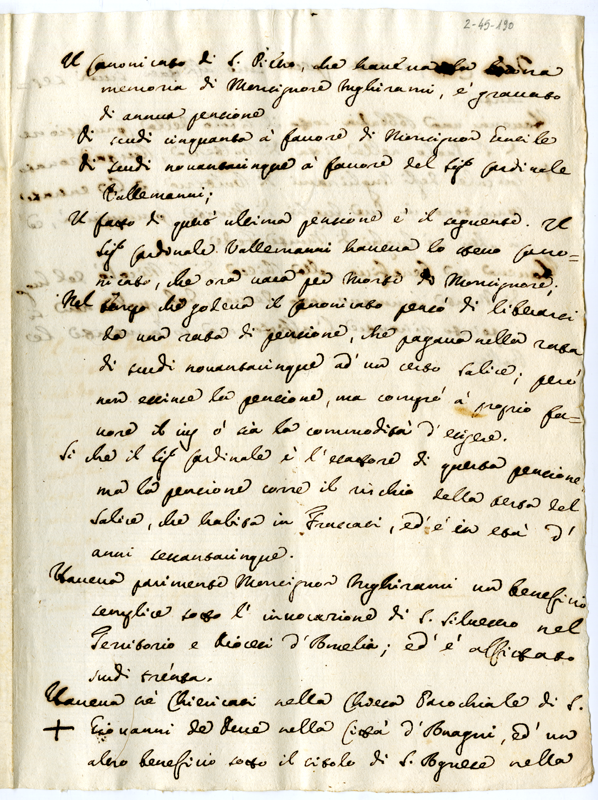 2-45-190
Il Canonicato di S. Pietro, che haveva la buona
memoria di Monsignore Inghirami, è gravato
di annua pensione
Di scudi cinquanta à favore di Monsignor Gentile
Di scudi novantacinque à favore del Sig.r Cardinale
Vallemanni;
Il fatto di quest'ultima pensione è il seguente. Il
Sig.r Cardinale Vallemanni haveva lo stesso Cano=
nicato, che ora vaca per morte di Monsignore;
Nel tempo che godeva il Canonicato pensò di liberarsi
da una rata di pensione, che pagava nella rata
di scudi novantacinque ad' un certo Salice; però
non estinse la pensione, ma comprò à proprio fa=
vore il ius ò sia la commodità d'esigere.
Si che il Sig.r Cardinale è l'esattore di questa pensione
ma la pensione corre il rischio della testa del
Salice, che habita in Frascati, ed' è in età d'
anni sessantacinque.
Haveva parimente Monsignor Inghirami un beneficio
semplice sotto l'invocazione di S. Silvestro nel
Territorio e Diocesi d'Amelia; ed' è affittato
scudi trenta.
Haveva trè Chiericati nella Chiesa Parochiale di S.
+ Giovanni de Duce nella Città d'Anagni, ed' un
altro beneficio sotto il titolo di S. Agnese nella